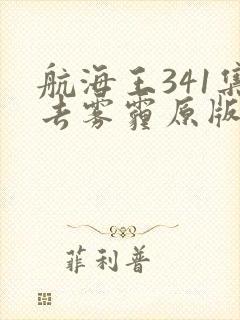 航海王341集
去雾霾原版
菲利普